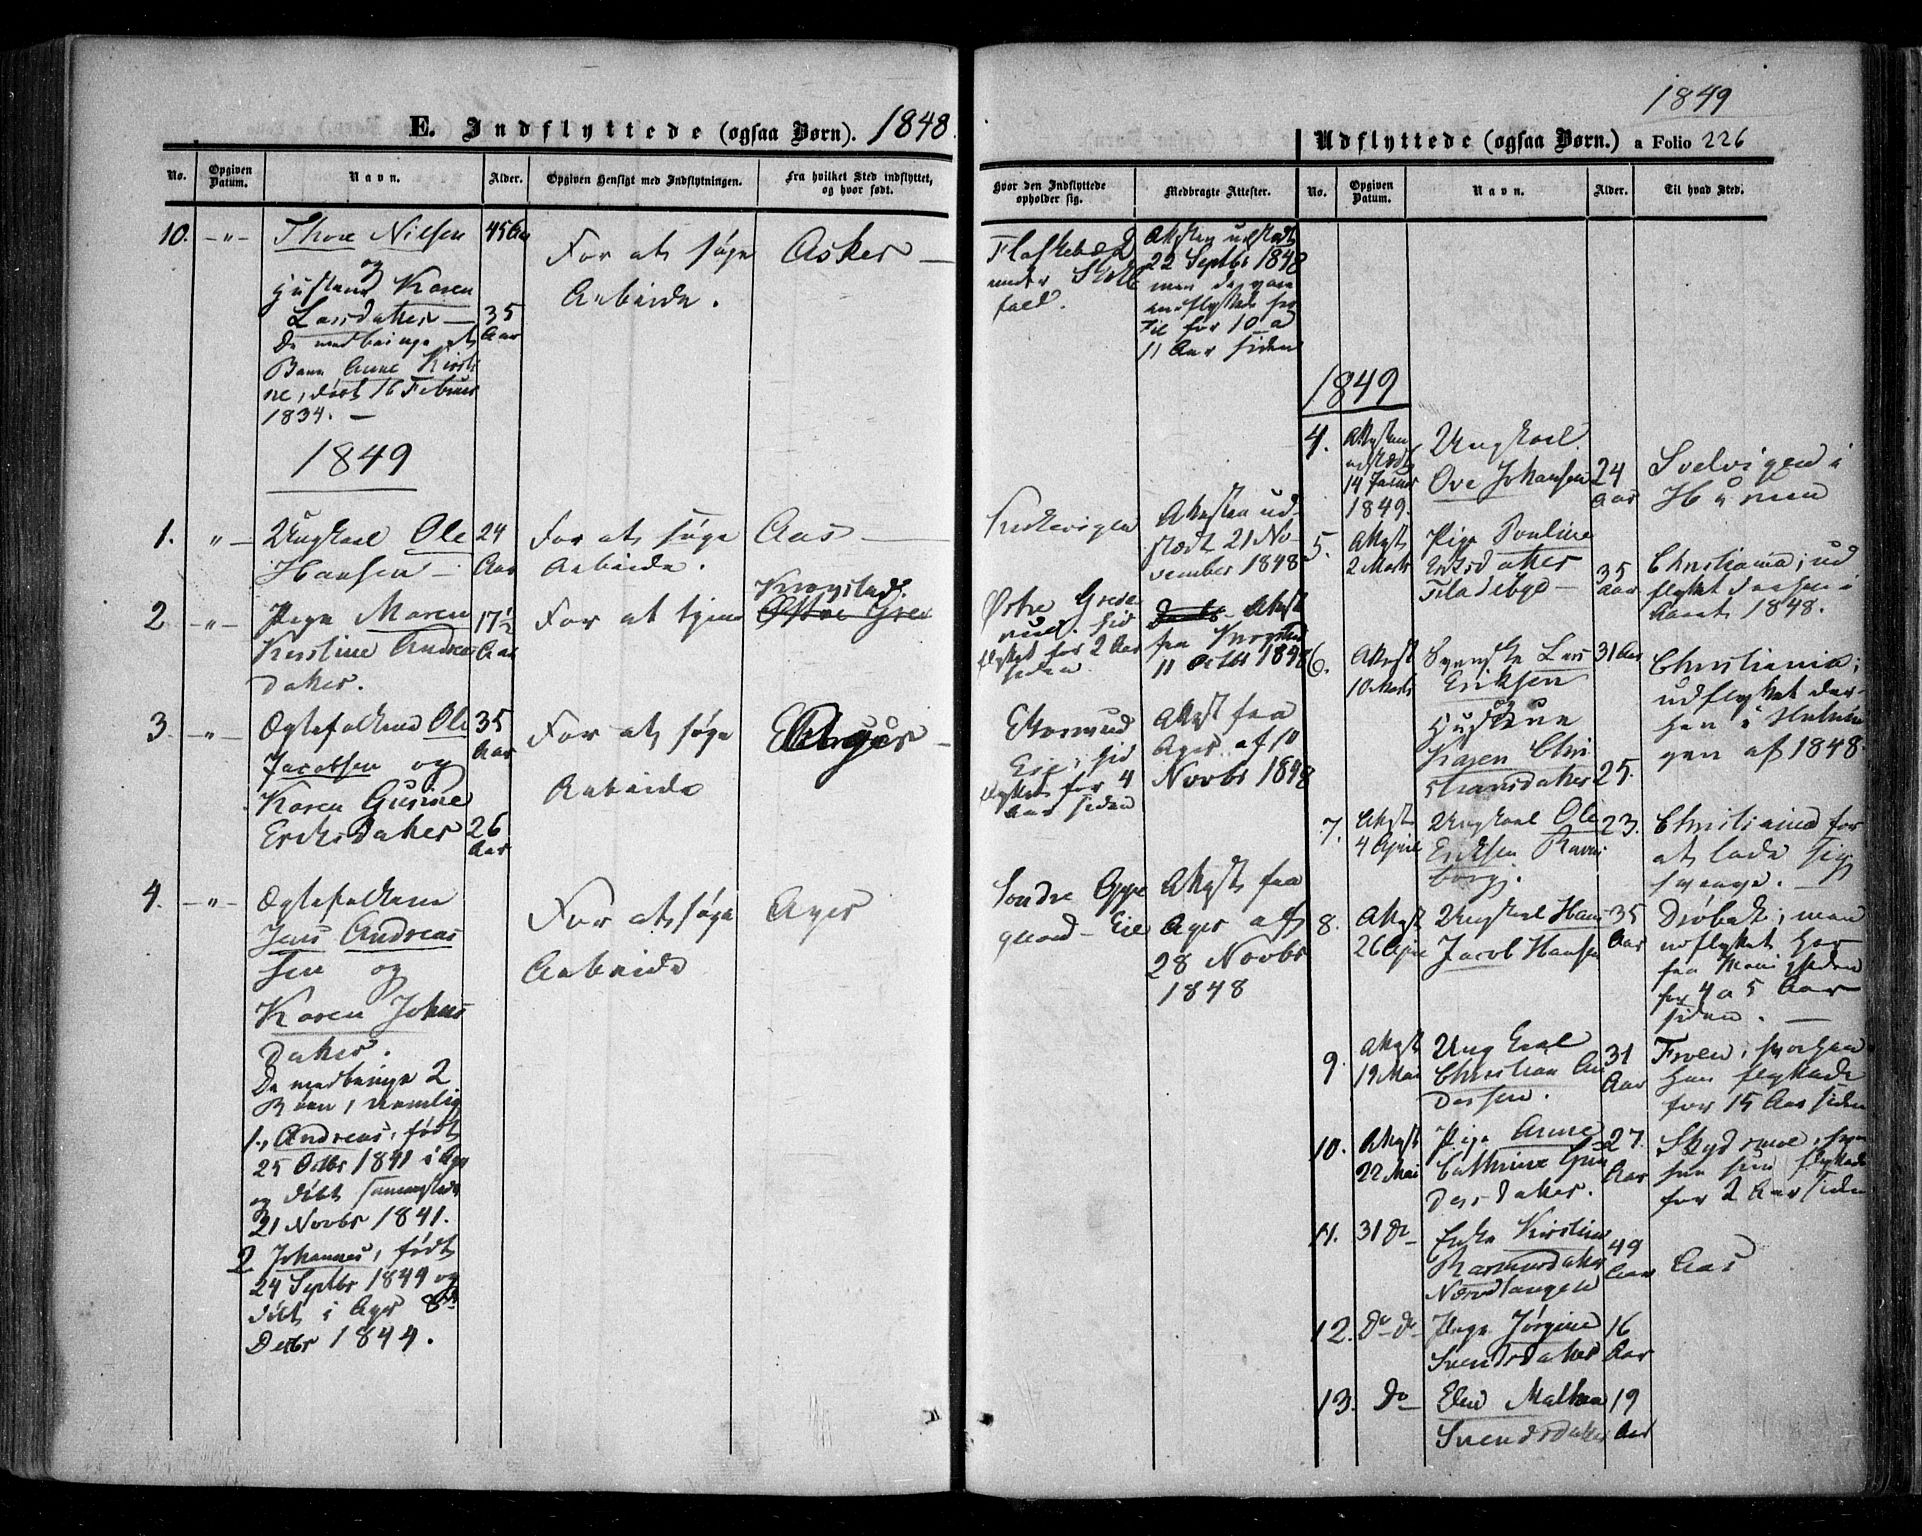 E. Indflyttede (ogsaa Børn). 1848.
No.
Opgiven Datum.
Navn.
Alder.
Opgiven Hensigt med Indflytningen.
Fra hvilket Sted indflyttet, og hvor født.
10. -"- Thore Nilsen 45 Aar For at søge Arbeide. Asker
og
Hustrue Karen
Larsdatter 35 Aar
De medbringe et
Barn Anne Kirsti
ne, født 16 Februar
1834. -
1849
1. "- Ungkarl Ole 24 Aar For at søge Arbeide. Aas
Hansen
2 -"- Pige Maren 17½ Aar For at tjene Krogstad.
Kirstine Andreas
datter.
3 -"- Ægtefolkene Ole 35 Aar For at søge Arbeide
Jacobsen og
Karen Gurine
Eriksdatter 26 Aar
4. -"- Ægtefolkene For at søge Arbeide Ager
Jens Andreas
sen og
Karen Johns
datter.
De medbringe 2
Børn, nemlig
1., Andreas, født
25 Octbr 1841 i Ager
og døbt sammesteds
21 Novbr 1841.
2 Johannes, født
24 Septbr 1844 og
døbt i Ager 8de
Decbr 1844.
1849
Hvor den Indflyttede opholder sig.
Medbragte Attester.
Flaskebæk
under Skok
fald.
Attesten udstædt
22 Septbr 1848
men de vare
indflyttede her
til for 10 a
11 Aar siden
Attesten ud-
stædt 21 No
vember 1848
Østre Grese
rud. hid
flyttet for 2 Aar
siden
Attest
fra Krogstad
11 Octbr 1848
Eie, hid
flyttet for 4
Aar siden
Attest fra
Ager af 10
Novbr 1848
Søndre Oppe
gaard Eie
Attest fra
Ager af
28 Novbr
1848
Udflyttede (ogsaa Børn.) a Folio 226
No.
Opgiven Datum.
Navn.
Alder.
Til hvad Sted.
1849
4. Attesten udstædt 14 Januar 1849. Ungkarl
Ove Johansen 24 Aar Svelvigen i
Hurum
5. Attest 2 Marts Pige Pouline
Eriksdatter 35 Aar Christiania; ud
flyttet dersen i
Aaret 1848.
6. Attest 10 Marts Svenske Lars 31 Aar
Eriksen
og
Hustrue
Karen Chri
stiansdatter 25.
Christiania;
udflyttet der-
hen i Slutnin
gen af 1848.
7. Attest 4 April Ungkarl Ole 23.
Eriksen Ravns
borg.
Christiania for
at lade sig
svænge.
8. Attest 26 April Ungkarl Hans 35 Aar
Jacob Hansen
Drøbak; men
udflyttet her
fra Menigheden
for 4 a 5 Aar
siden.
9. Attest 19 Mai Ungkarl 31 Aar
Christian An
dersen.
Froen, hvorhen
han flyttede
for 15 Aar siden
10. Attest 22 Mai Pige Anne 27. Aar
Cathrine Gun
dersdatter.
hen hun flyttede
for 2 Aar siden
11. 31 Do Enke Kirstine 49 Aar Aas
Rasmusdatter
Nordtangen
12. Do Do Pige Jørgine 16 Aar
Svendsdatter
13. Do Elen Mathea 19 Aar
Svendsdatter